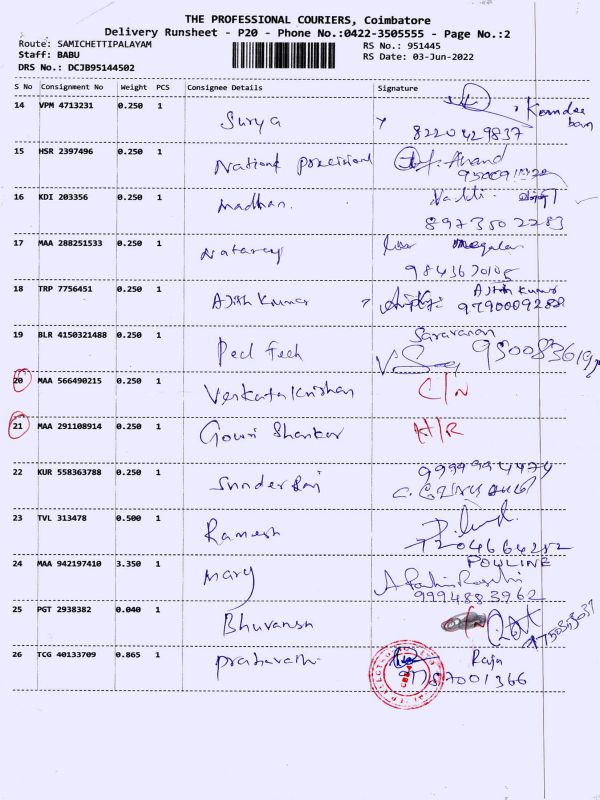 THE PROFESSIONAL COURIERS, Coimbatore
Delivery Runsheet - P20 - Phone No.:0422-3505555 - Page No.:2
Route: SAMICHETTIPALAYAM
RS No.: 951445
Staff: BABU
RS Date: 03-Jun-2022
DRS No.: DCJB95144502
S No Consignment No Weight PCS Consignee Details Signature
14 VPM 4713231 0.250 1 Surya
8220429837
15 HSR 2397496 0.250 1 National Anand
16 KDI 203356 0.250 1 Madhan.
8973502283
17 MAA 288251533 0.250 1 Nataraj
9843670105
18 TRP 7756451 0.250 1 Ajith Kumar Ajith Kumar
9790009288
19 BLR 4150321488 0.250 1 Pecl Tech Saravanan
20 MAA 566490215 0.250 1 Venkatakrishan C/N
21 MAA 291108914 0.250 1 Gouri Shankar H/R
22 KUR 558363788 0.250 1 Sunder Raj
23 TVL 313478 0.500 1 Ramesh
7204664252
24 MAA 942197410 3.350 1 Mary POWLINE
9994883962
25 PGT 2938382 0.040 1 Bhuvansh
26 TCG 40133709 0.865 1 Prabavathi Raja
9787001366